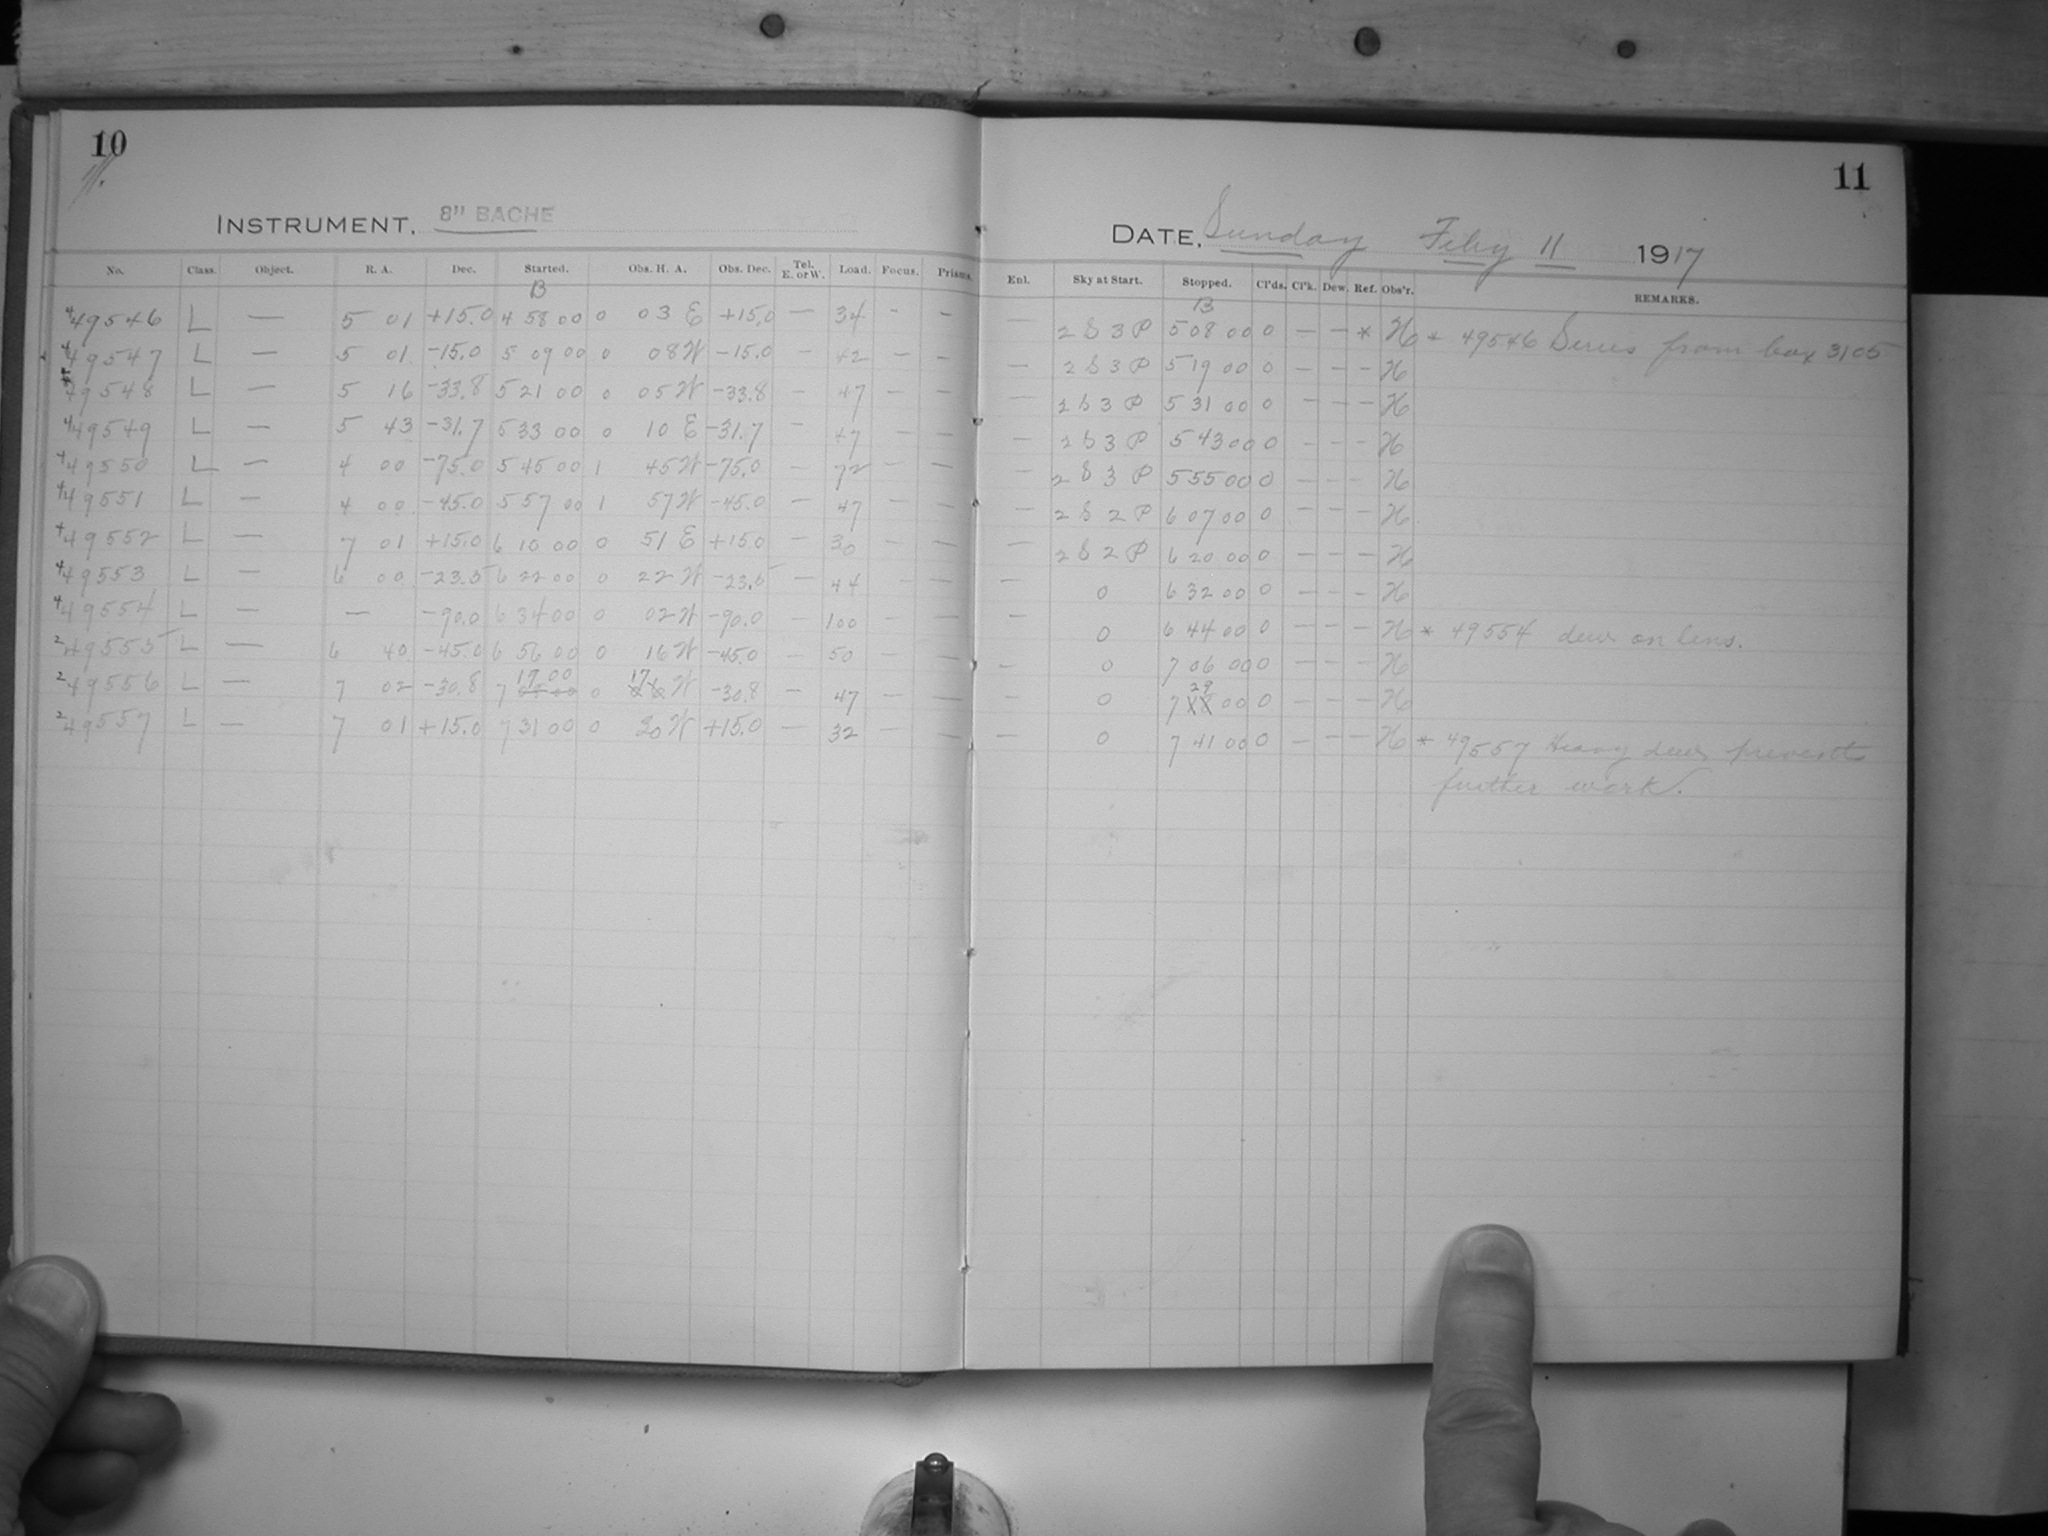 10
11.
INSTRUMENT, 8" BACHE
No. Class. Object. R. A. Dec. Started. Obs. H. A. Obs. Dec. Tel. E. or W. Load. Focus. Prisms.
B
4 49546 L — 5 01 +15.0 4 58 00 0 03 E +15.0 — 34 - -
4 49547 L — 5 01 -15.0 5 09 00 0 08 W -15.0 — 42 - -
49548 L — 5 16 -33.8 5 21 00 0 05 W -33.8 — 47 - -
4 49549 L — 5 43 -31.7 5 33 00 0 10 E -31.7 — 47 - -
4 49550 L — 4 00 -75.0 5 45 00 1 45 W -75.0 — 72 - -
4 49551 L — 4 00 -45.0 5 57 00 1 57 W -45.0 — 47 - -
4 49552 L — 7 01 +15.0 6 10 00 0 51 E +15.0 — 30 - -
4 49553 L — 6 00 -23.5 6 22 00 0 22 W -23.5 — 44 - -
4 49554 L — — -90.0 6 34 00 0 02 W -90.0 — 100 - -
2 49555 L — 6 40 -45.0 6 56 00 0 16 W -45.0 — 50 - -
2 49556 L — 7 02 -30.8 7 17 00 0 17 W -30.8 — 47 - -
2 49557 L — 7 01 +15.0 7 31 00 0 30 W +15.0 — 32 - -
11
DATE, Sunday Feby 11 1917
Enl. Sky at Start. Stopped. Cl'ds. Cl'k. Dew. Ref. Obs'r. REMARKS.
B
— 2 S 3 P 5 08 00 0 — — * H * 49546 Series from box 3105
— 2 S 3 P 5 19 00 0 — — — H
— 2 S 3 P 5 31 00 0 — — — H
— 2 S 3 P 5 43 00 0 — — — H
— 2 S 3 P 5 55 00 0 — — — H
— 2 S 2 P 6 07 00 0 — — — H
— 2 S 2 P 6 20 00 0 — — — H
— 0 6 32 00 0 — — — H
— 0 6 44 00 0 — — — H * 49554 dew on lens.
— 0 7 06 00 0 — — — H
— 0 7 29 00 0 — — — H
— 0 7 41 00 0 — — — H * 49557 Heavy dew prevents
further work.